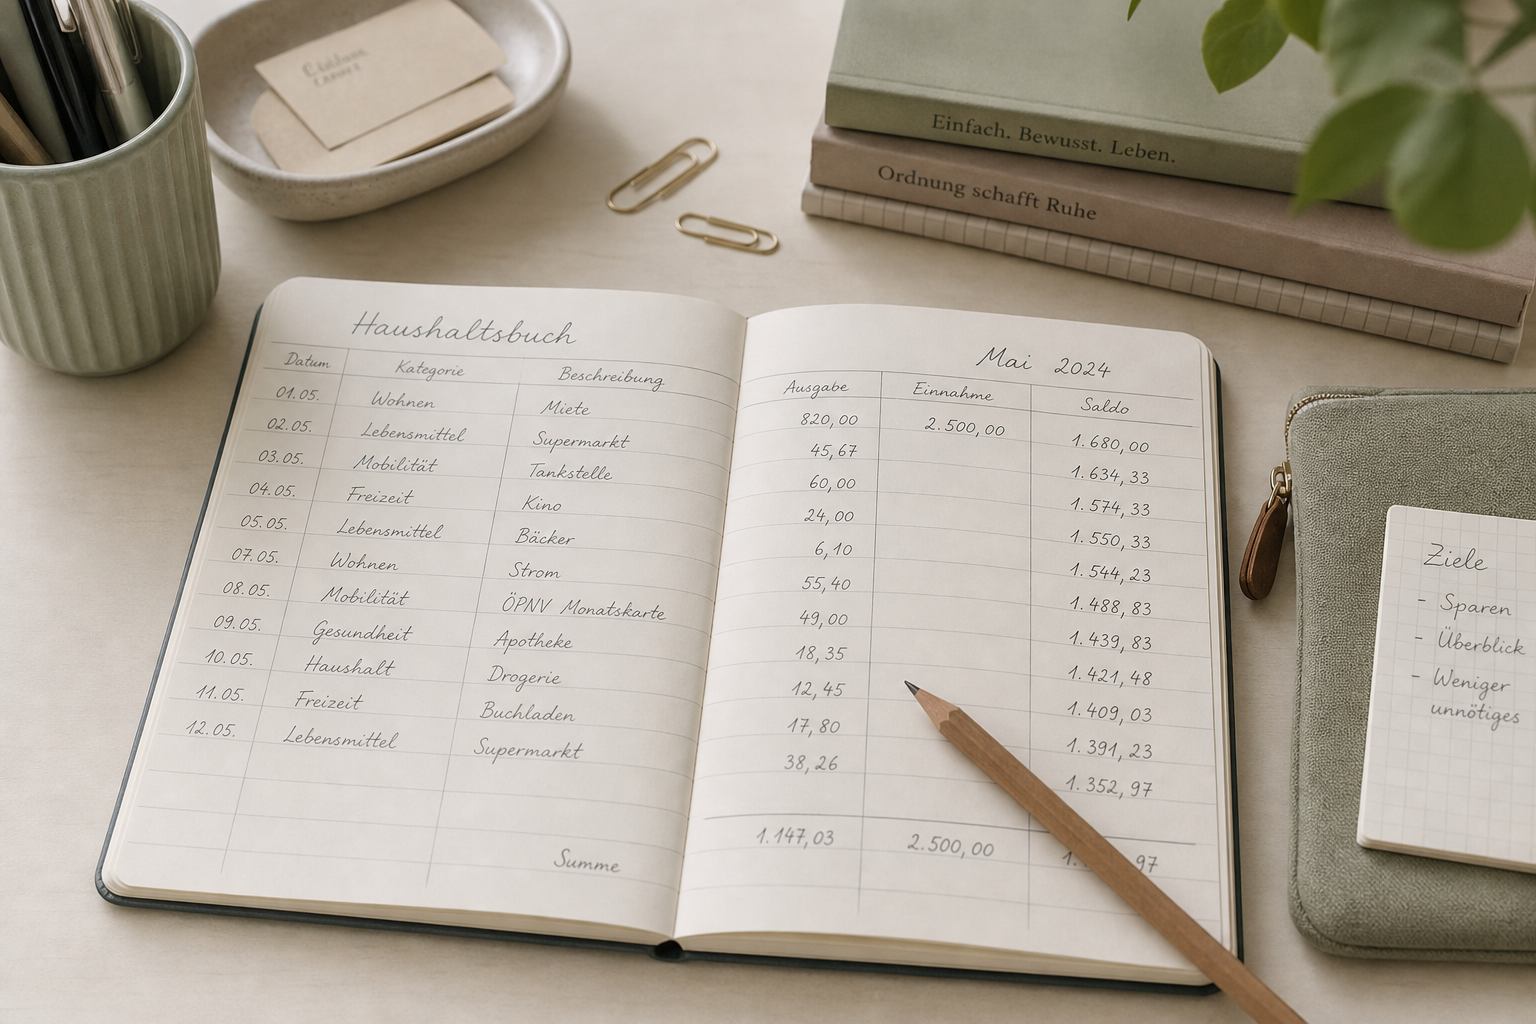 Einfach. Bewusst. Leben.
Ordnung schafft Ruhe
Haushaltsbuch
Mai 2024
Datum Kategorie Beschreibung Ausgabe Einnahme Saldo
01.05. Wohnen Miete 820,00 2.500,00 1.680,00
02.05. Lebensmittel Supermarkt 45,67 1.634,33
03.05. Mobilität Tankstelle 60,00 1.574,33
04.05. Freizeit Kino 24,00 1.550,33
05.05. Lebensmittel Bäcker 6,10 1.544,23
07.05. Wohnen Strom 55,40 1.488,83
08.05. Mobilität ÖPNV Monatskarte 49,00 1.439,83
09.05. Gesundheit Apotheke 18,35 1.421,48
10.05. Haushalt Drogerie 12,45 1.409,03
11.05. Freizeit Buchladen 17,80 1.391,23
12.05. Lebensmittel Supermarkt 38,26 1.352,97
Summe 1.147,03 2.500,00
Ziele
- Sparen
- Überblick
- Weniger
unnötiges